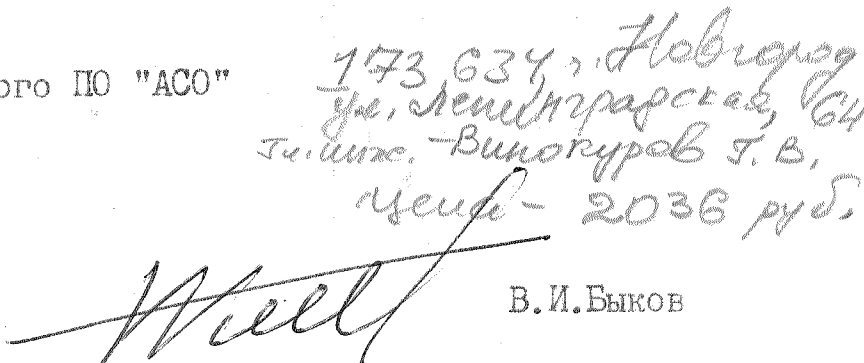 ого ПО "АСО"
173634, г. Новгород
ул. Ленинградская, 64
Гл. инж. - Винокуров Г. В.
цена - 2036 руб.
В.И.Быков